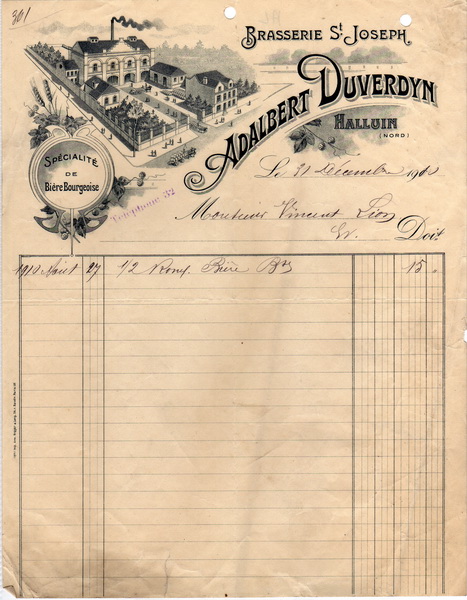 301
BRASSERIE St JOSEPH
ADALBERT DUVERDYN
HALLUIN
(NORD)
SPÉCIALITÉ
DE
Bière Bourgeoise
Téléphone 32
Le 31 Décembre 1910
Monsieur Vincent Lion
Doit
1910 Août 27 1/2 Bière 15